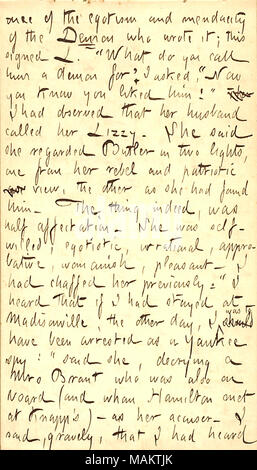 once of the egotism and mendacity
of the Demon who wrote it; this
signed L. "What do you call
him a demon for? I asked, "Now
you know you liked him!"
I had observed that her husband
called her Lizzy. She said
she regarded Butler in two lights,
one from her rebel and patriotic
view, the other as she had found
him. The thing indeed, was
half affectation. She was self-
willed, egotistic, irrational, appro-
bative, womanish, pleasant. I
had chaffed her previously. "I
heard that if I had stayed at
Madisonville, the other day, I should
have been arrested as a Yankee
spy!" said she, decrying a
Mrs Brant who was also on
board (and whom Hamilton met
at Knapp's) — as her accuser. I
said, gravely, that I had heard
alamy
Image ID: MAKTJK
www.alamy.com